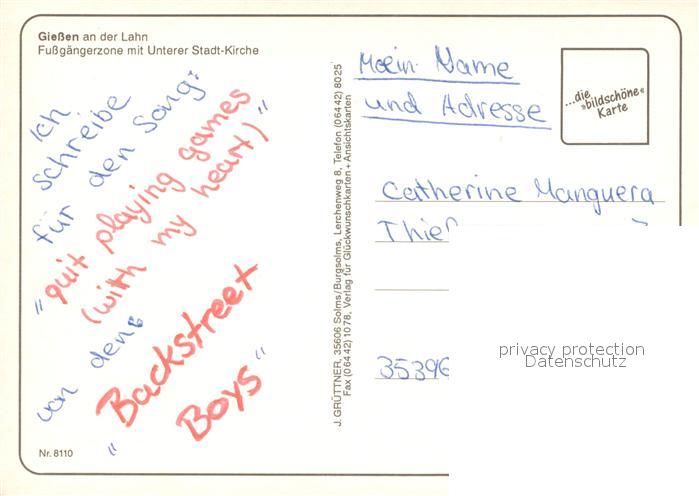 Gießen an der Lahn
Fußgängerzone mit Unterer Stadt-Kirche
Ich
schreibe
für den Song:
"quit playing games
(with my heart)"
von den
"Backstreet
Boys"
Nr. 8110
J. GRÜTTNER, 35606 Solms/Burgsolms, Lerchenweg 8, Telefon (06442) 8025
Fax (06442) 1078, Verlag für Glückwunschkarten + Ansichtskarten
Mein Name
und Adresse
...die
»bildschöne«
Karte
Catherine Manguera
35396
privacy protection
Datenschutz